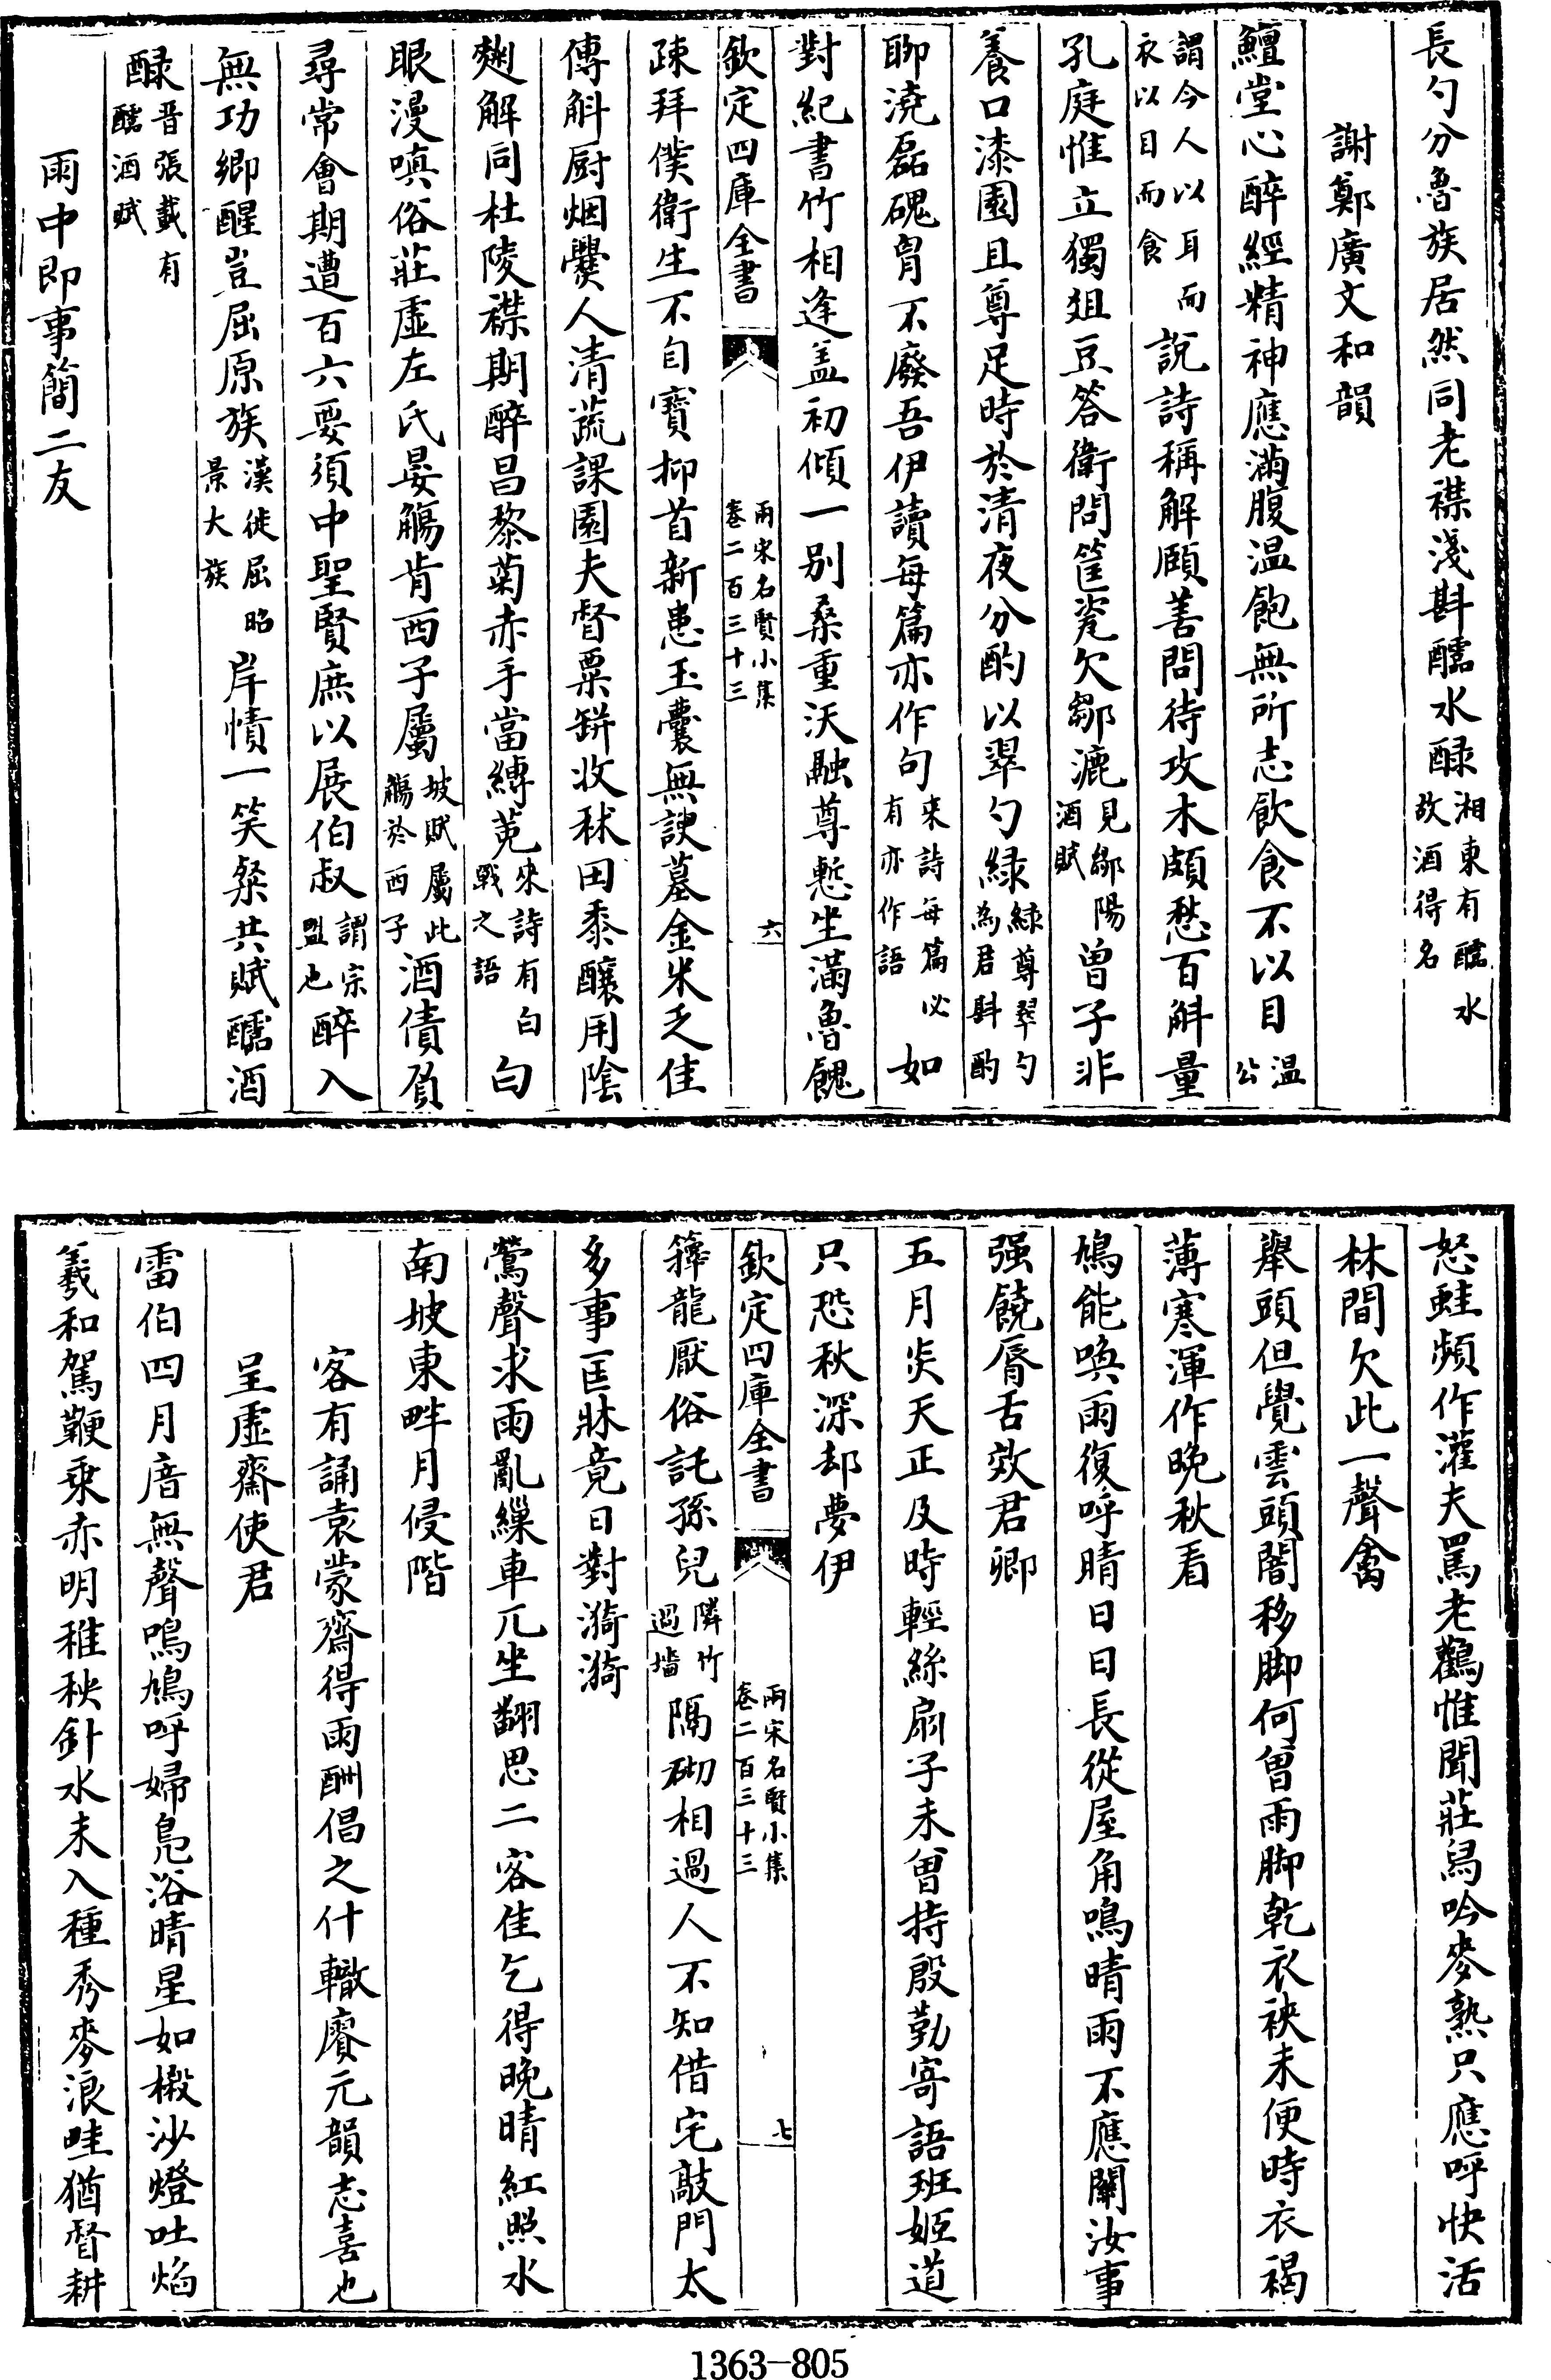 長勺分魯族居然同老襟淺斟醽水醁湘東有醽水故酒得名
謝鄭廣文和韻
鱣堂心醉經精神應滿腹温飽無所志飲食不以目温公
謂今人以耳而衣以目而食說詩稱解頤善問待攻木頗愁百斛量
孔庭惟立獨俎豆答衛問筐瓷欠鄒漉見鄒陽酒賦曽子非
養口漆園且尊足時於清夜分酌以翠勺緑緑尊翠勺為君斟酌
聊澆磊磈胷不廢吾伊讀每篇亦作句来詩每篇必有亦作語如
對紀書竹相逢盖初傾一别桑重沃融尊慙坐滿魯餽
欽定四庫全書
兩宋名賢小集卷二百三十三
六
疎拜僕衛生不自寳抑首新患玉囊無諛墓金米乏佳
傳斛厨烟爨人清蔬課園夫督粟缾收秫田黍釀用陰
麴解同杜陵襟期醉昌黎菊赤手當縛菟來詩有白戰之語白
眼漫嗔俗莊虛左氏晏觴肯西子屬坡賦屬此觴於西子酒債負
尋常會期遭百六要須中聖賢庶以展伯叔謂宗盟也醉入
無功鄉醒豈屈原族漢徙屈昭景大族岸幘一笑粲共賦醽酒
醁晋張載有醽酒賦
雨中即事簡二友
怒蛙頻作灌夫罵老鸛惟聞莊舄吟麥熟只應呼快活
林間欠此一聲禽
舉頭但覺雲頭闇移脚何曽雨脚乾衣袂未便時衣褐
薄寒渾作晚秋看
鳩能喚雨復呼晴日日長從屋角鳴晴雨不應關汝事
强饒脣舌效君卿
五月炎天正及時輕絲扇子未曽持殷勤寄語班姬道
只恐秋深却夢伊
欽定四庫全書
兩宋名賢小集卷二百三十三
七
籜龍厭俗託孫兒隣竹過墻隔砌相過人不知借宅敲門太
多事匡牀竟日對漪漪
鶯聲求雨亂繅車兀坐翻思二客佳乞得晚晴紅照水
南坡東畔月侵階
客有誦袁蒙齋得雨酬倡之什轍賡元韻志喜也
呈虛齋使君
雷伯四月瘖無聲鳴鳩呼婦鳬浴晴星如椴沙燈吐焰
羲和駕鞭乗赤明稚秧針水未入種秀麥浪畦猶督耕
1363-805